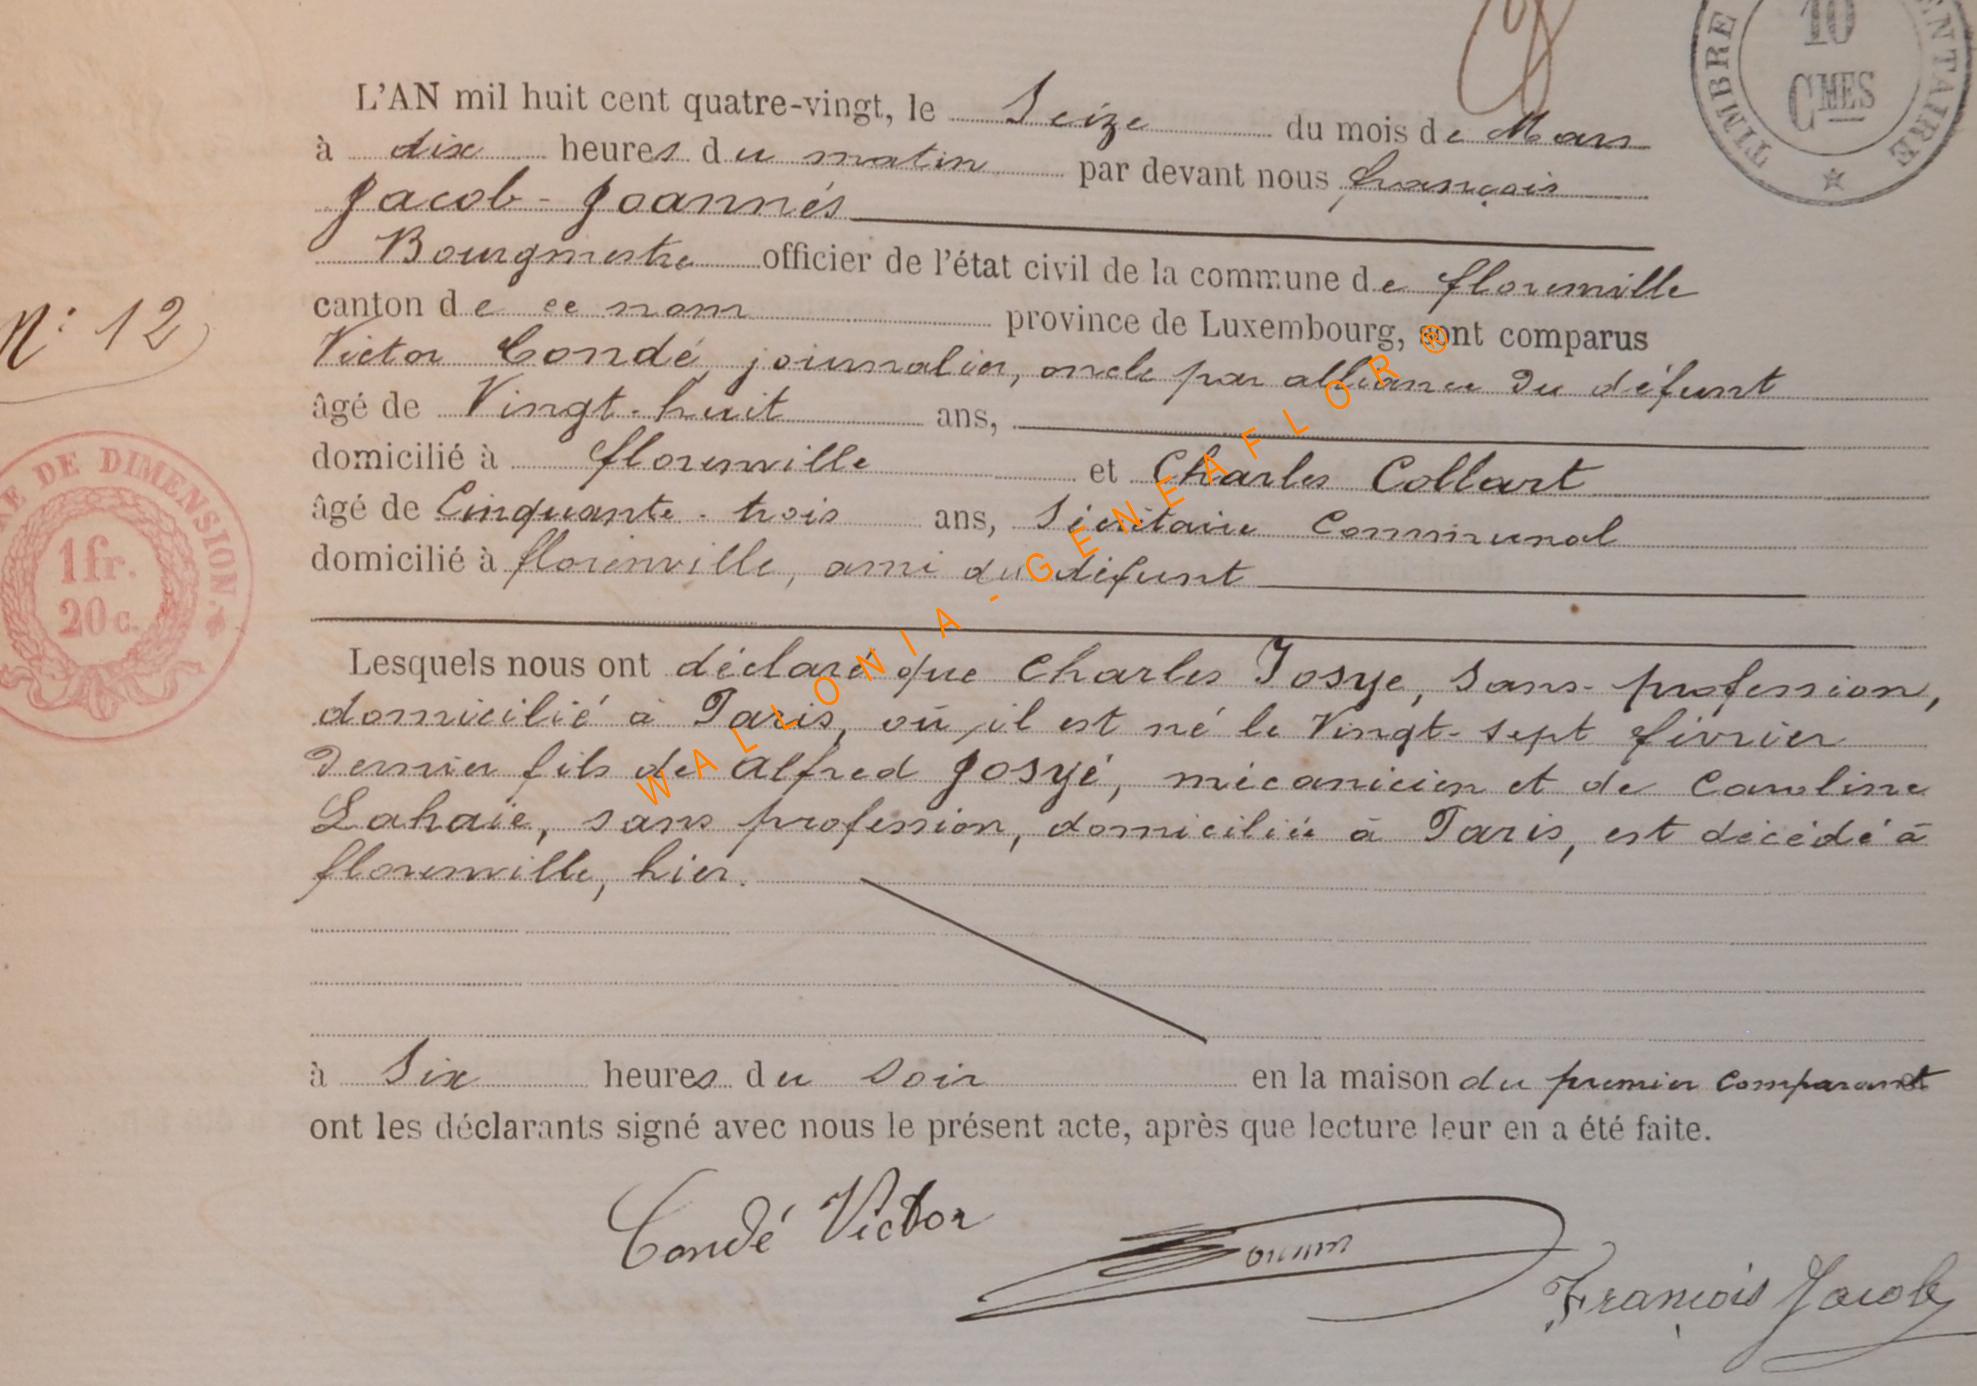 10
CMES
TIMBRE
ENTAIRE
L'AN mil huit cent quatre-vingt, le Seize du mois de Mars
à dix heures du matin par devant nous françois
Jacob-Joannés
Bourgmestre officier de l'état civil de la commune de florenville
N: 12
canton de ce nom province de Luxembourg, sont comparus
Victor Condé, journalier, oncle par alliance du défunt
âgé de Vingt-huit ans,
domicilié à florenville et Charles Collart
âgé de Cinquante-trois ans, Sécrétaire Communal
domicilié à florenville, ami du défunt
RE DE DIMENSION.
1fr.
20c.
Lesquels nous ont déclaré que Charles Josye, sans profession,
domicilié à Paris, où il est né le Vingt-sept février
dernier fils de Alfred Josyé, mécanicien et de Caroline
Lahaie, sans profession, domiciliée à Paris, est décédé à
florenville, hier.
à Six heures du soir en la maison du premier comparant
ont les déclarants signé avec nous le présent acte, après que lecture leur en a été faite.
Condé Victor
François Jacob
WALLONIA-GENEAFLOR®